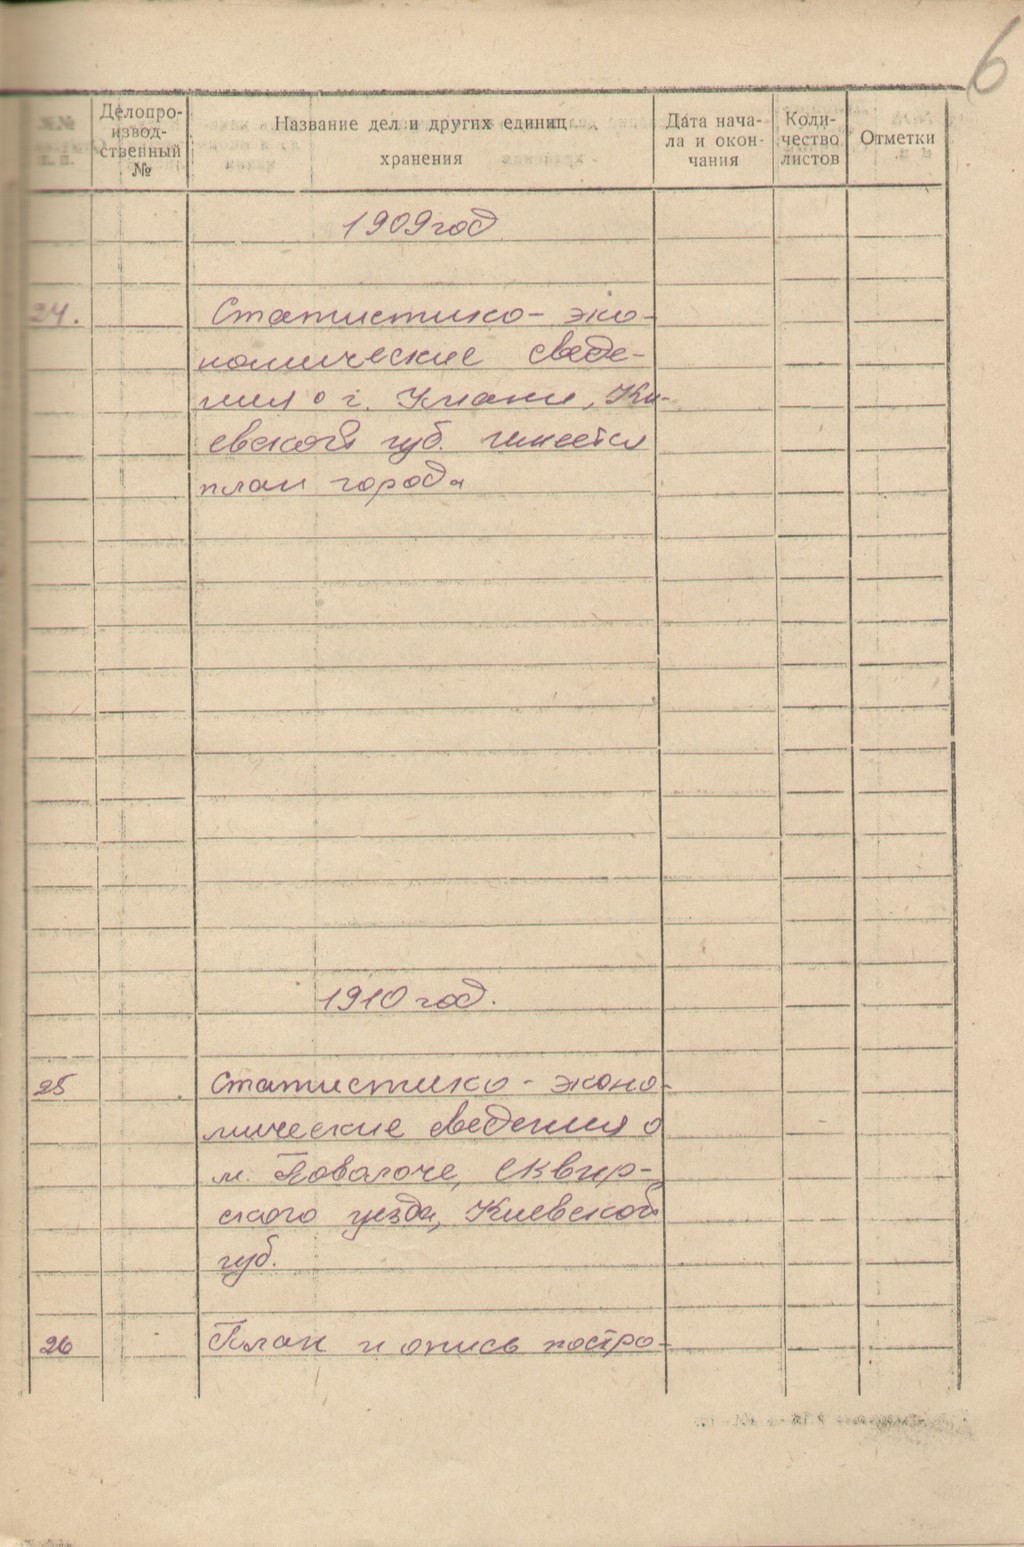 6
№№ п. п.
Делопроизвод-
ственный
№
Название дел и других единиц
хранения
Дата нача-
ла и окон-
чания
Коли-
чество
листов
Отметки
1909 год
24.
Статистико-эко-
номические сведе-
ния о г. Умани, Ки-
евской губ. имеется
план города
1910 год.
25
Статистико-эконо-
мические сведения о
м. Поволоче, Сквир-
ского уезда, Киевской
губ.
26
План и опись постро-